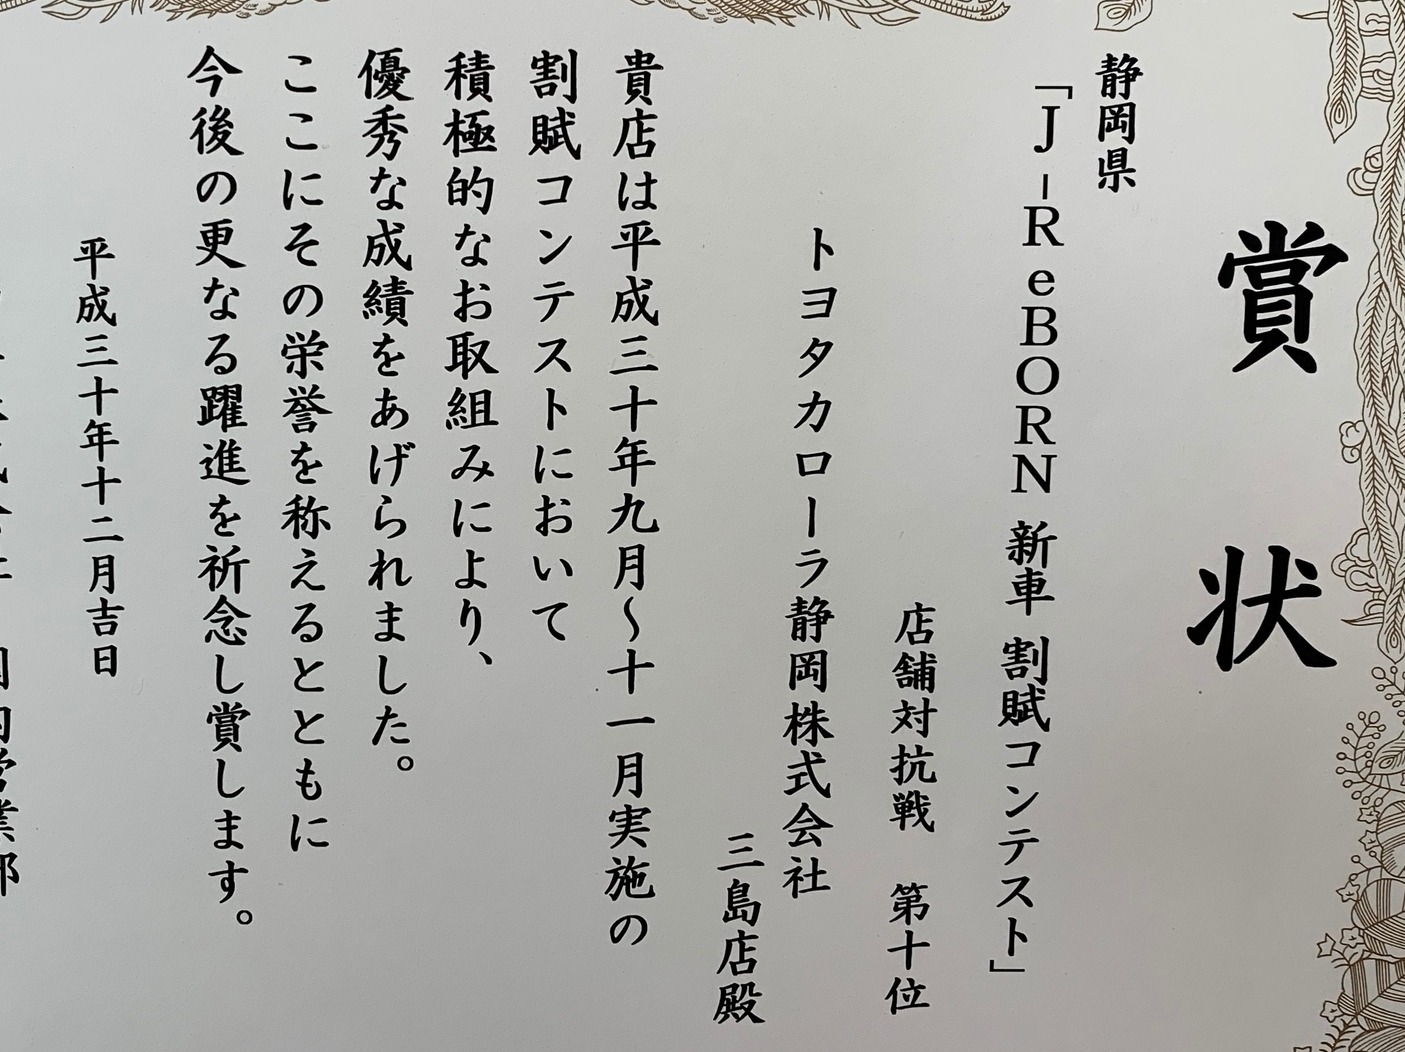 賞状
静岡県
「J-ReBORN 新車 割賦コンテスト」
店舗対抗戦 第十位
トヨタカローラ静岡株式会社
三島店殿
貴店は平成三十年九月〜十一月実施の
割賦コンテストにおいて
積極的なお取組みにより、
優秀な成績をあげられました。
ここにその栄誉を称えるとともに
今後の更なる躍進を祈念し賞します。
平成三十年十二月吉日